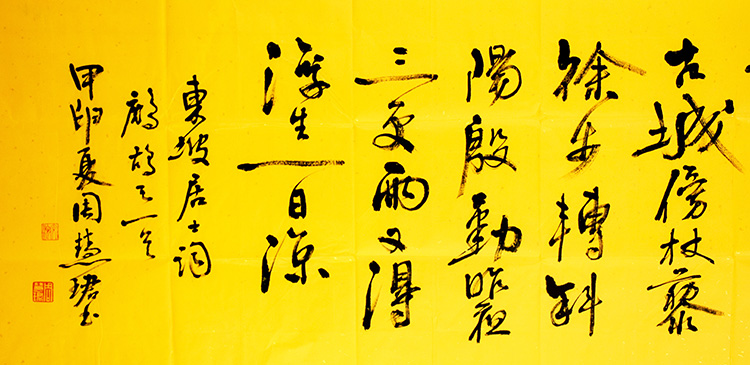 古城傍杖藜
徐步轉斜
陽殷勤昨夜
三更雨又得
浮生一日涼
東坡居士詞
鷓鴣天一首
甲申夏周慧珺書